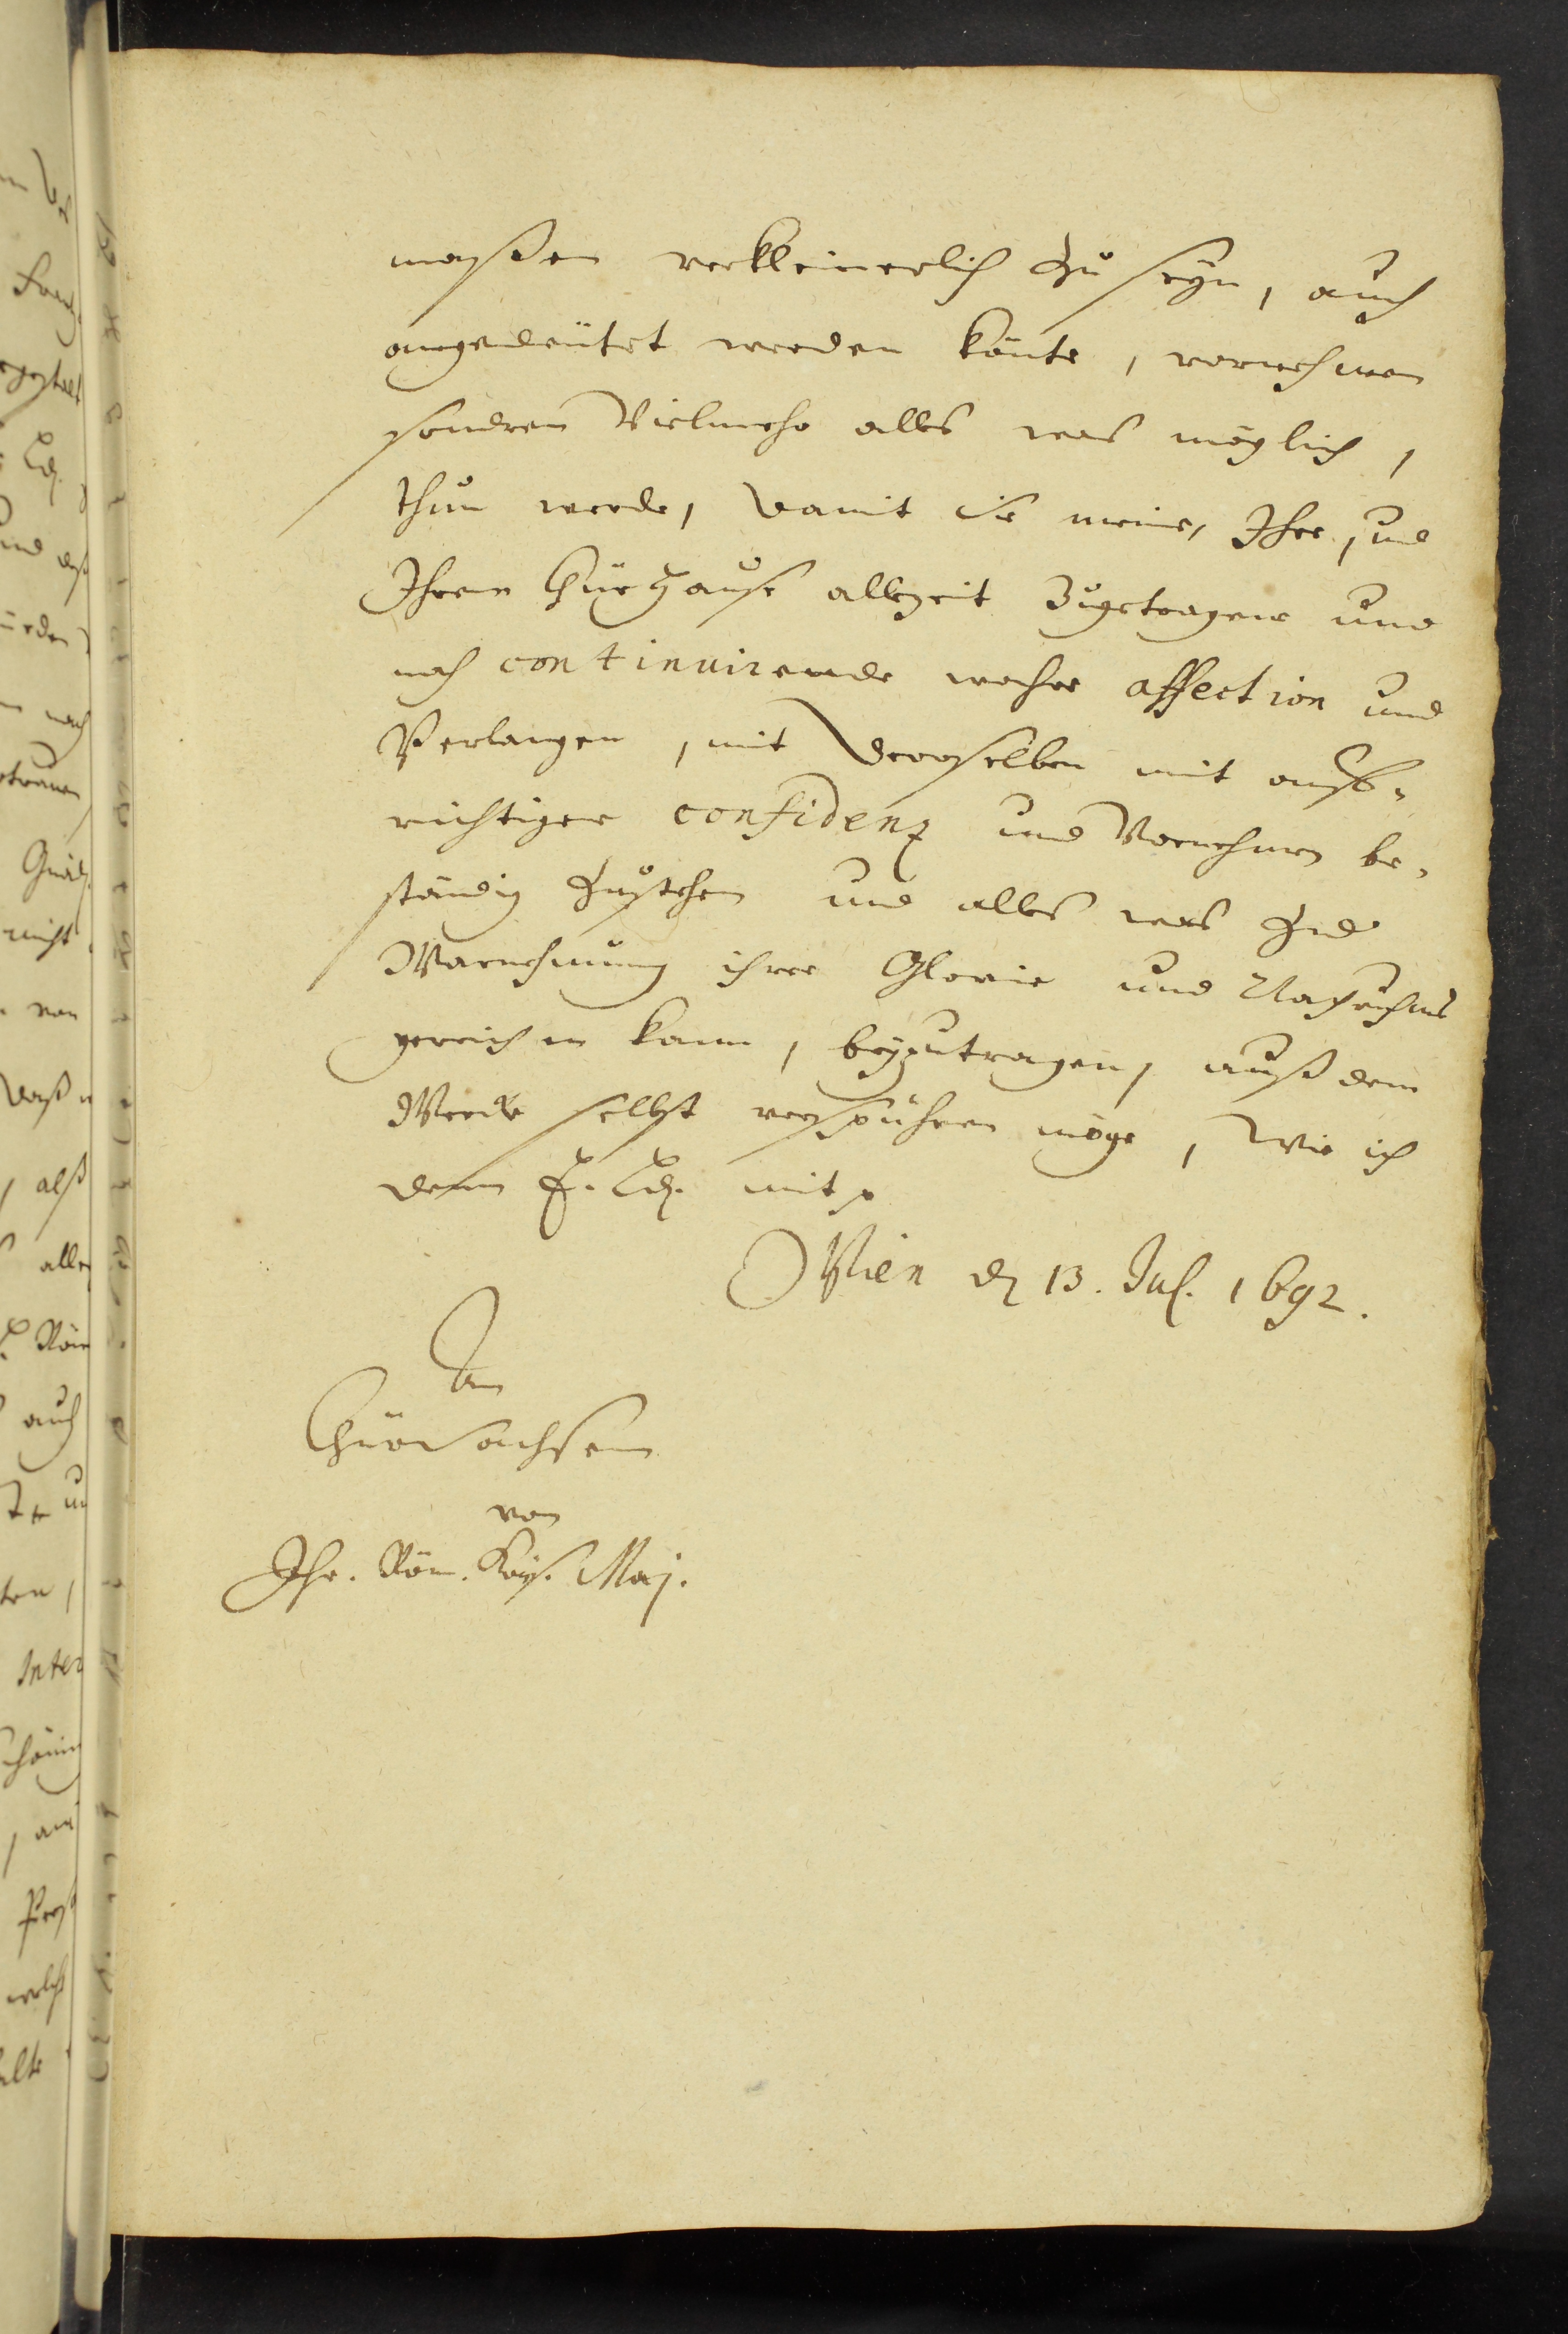 maßen verkleinerlich zu seyn, auch
angedeütet werden könte, vornehmen
sondren Vielmehr alles was möglich,
thun werde, damit sie meine, Ihre, und
Ihrem Chur Hause allezeit Zugetragene und
noch continuirende wahre affection und
Verlangen, mit deroselben mit auff-
richtiger confidenz und Vernehmen be-
ständig zustehen und alles was zu
Warnehmung ihrer Glorie und Aufnehmens
gereichen kann, beyzutragen, auß dem
Wercke selbst verspühren möge, Wie ich
denn E. Ld. mit
Wien d 13. Jul. 1692.
An
Chur Sachsen
von
Ihr. Röm. Kays. Maj.